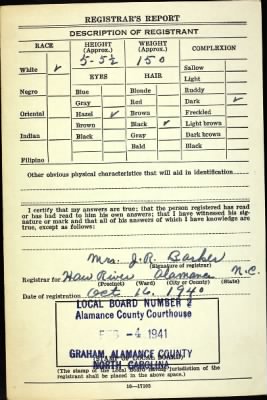 REGISTRAR'S REPORT
DESCRIPTION OF REGISTRANT
RACE HEIGHT (Approx.) WEIGHT (Approx.) COMPLEXION
White ✓ 5-5½ 150 Sallow
EYES HAIR Light
Negro Blue Blonde Ruddy
Gray Red Dark ✓
Oriental Hazel ✓ Brown Freckled
Brown Black ✓ Light brown
Indian Black Gray Dark brown
Bald Black
Filipino
Other obvious physical characteristics that will aid in identification
I certify that my answers are true; that the person registered has read
or has had read to him his own answers; that I have witnessed his sig-
nature or mark and that all of his answers of which I have knowledge are
true, except as follows:
Mrs. J. R. Barker
(Signature of registrar)
Registrar for Haw River Alamance N.C.
(Precinct) (Ward) (City or County) (State)
Date of registration Oct 16, 1940
LOCAL BOARD NUMBER 2
Alamance County Courthouse
FEB -4 1941
GRAHAM, ALAMANCE COUNTY
NORTH CAROLINA
(STAMP OF LOCAL BOARD)
(The stamp of the Local Board having jurisdiction of the
registrant shall be placed in the above space.)
16—17105